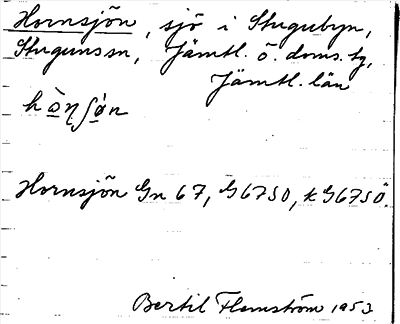 Hornsjön, sjö i Stugubyn,
Stuguns sn, Jämtl. ö. doms. tg,
Jämtl. län
Hornsjön Gn 67, G67SO, k G67SÖ.
Bertil Flemström 1953